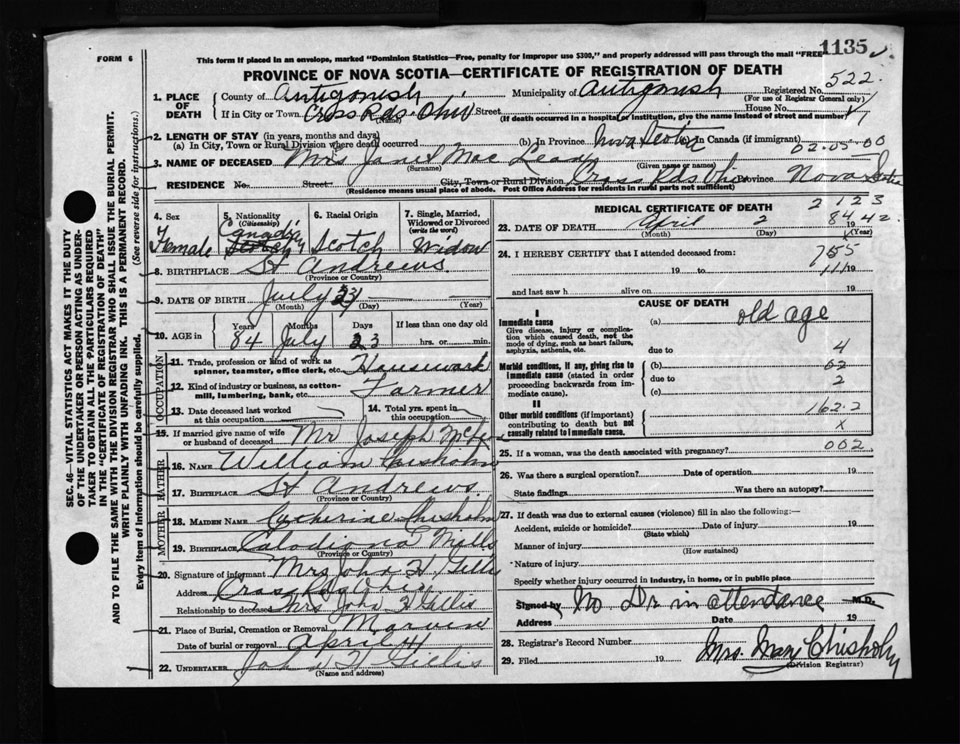 FORM 6
This form if placed in an envelope, marked "Dominion Statistics—Free, penalty for improper use $300," and properly addressed will pass through the mail "FREE
1135
PROVINCE OF NOVA SCOTIA—CERTIFICATE OF REGISTRATION OF DEATH
1. PLACE OF DEATH
County of Antigonish Municipality of Antigonish Registered No. 522.
(For use of Registrar General only)
If in City or Town Cross Rds. Ohio Street House No.
(Name) (If death occurred in a hospital or institution, give the name instead of street and number)
2. LENGTH OF STAY (in years, months and days)
(a) In City, Town or Rural Division where death occurred (b) In Province Nova Scotia (c) In Canada (if immigrant)
02.05-00
3. NAME OF DECEASED Mrs Janet Mac Lean
(Surname) (Given name or names)
RESIDENCE No. Street City, Town or Rural Division Cross Rds Ohio Province Nova Scotia
(Residence means usual place of abode. Post Office Address for residents in rural parts not sufficient)
4. Sex
Female
5. Nationality (Citizenship)
Canadian
Scotch
6. Racial Origin
Scotch
7. Single, Married, Widowed or Divorced (write the word)
Widow
8. BIRTHPLACE St Andrews.
(Province or Country)
9. DATE OF BIRTH July 23
(Month) (Day) (Year)
10. AGE in
Years Months Days If less than one day old
84 July 23 hrs. or min.
OCCUPATION
11. Trade, profession or kind of work as spinner, teamster, office clerk, etc. Housework
12. Kind of industry or business, as cotton-mill, lumbering, bank, etc. Farmer
13. Date deceased last worked at this occupation
14. Total yrs. spent in this occupation
15. If married give name of wife or husband of deceased Mr Joseph
FATHER
16. NAME William Chisholm
17. BIRTHPLACE St Andrews.
(Province or Country)
MOTHER
18. MAIDEN NAME Catherine Chisholm
19. BIRTHPLACE Mills
(Province or Country)
20. Signature of informant Mrs John H Gillis
Address Cross Rds Ohio
Relationship to deceased Mrs John H Gillis
21. Place of Burial, Cremation or Removal
Date of burial or removal April 4
22. UNDERTAKER John H Gillis
(Name and address)
MEDICAL CERTIFICATE OF DEATH
2 123
84 42.
23. DATE OF DEATH April 2 19
(Month) (Day) (Year)
24. I HEREBY CERTIFY that I attended deceased from:
755
19 to 111 19
and last saw h alive on 19
CAUSE OF DEATH
I
Immediate cause
Give disease, injury or complication which caused death, not the mode of dying, such as heart failure, asphyxia, asthenia, etc.
(a) old age
due to 4
Morbid conditions, if any, giving rise to immediate cause (stated in order proceeding backwards from immediate cause).
(b) 62
due to 2
(c)
II
Other morbid conditions (if important) contributing to death but not causally related to immediate cause.
162.2
x
25. If a woman, was the death associated with pregnancy? 002
26. Was there a surgical operation? Date of operation 19
State findings Was there an autopsy?
27. If death was due to external causes (violence) fill in also the following:—
Accident, suicide or homicide? Date of injury 19
(State which)
Manner of injury
(How sustained)
Nature of injury
Specify whether injury occurred in industry, in home, or in public place
Signed by No Dr in attendance M.D.
Address Date 19
28. Registrar's Record Number
29. Filed 19 Mrs. Mary Chisholm
(Division Registrar)
SEC. 46—VITAL STATISTICS ACT MAKES IT THE DUTY
OF THE UNDERTAKER OR PERSON ACTING AS UNDER-
TAKER TO OBTAIN ALL THE PARTICULARS REQUIRED
IN THE "CERTIFICATE OF REGISTRATION OF DEATH"
AND TO FILE THE SAME WITH THE DIVISION REGISTRAR WHO SHALL ISSUE THE BURIAL PERMIT.
WRITE PLAINLY WITH UNFADING INK. THIS IS A PERMANENT RECORD.
Every item of information should be carefully supplied. (See reverse side for instructions.)